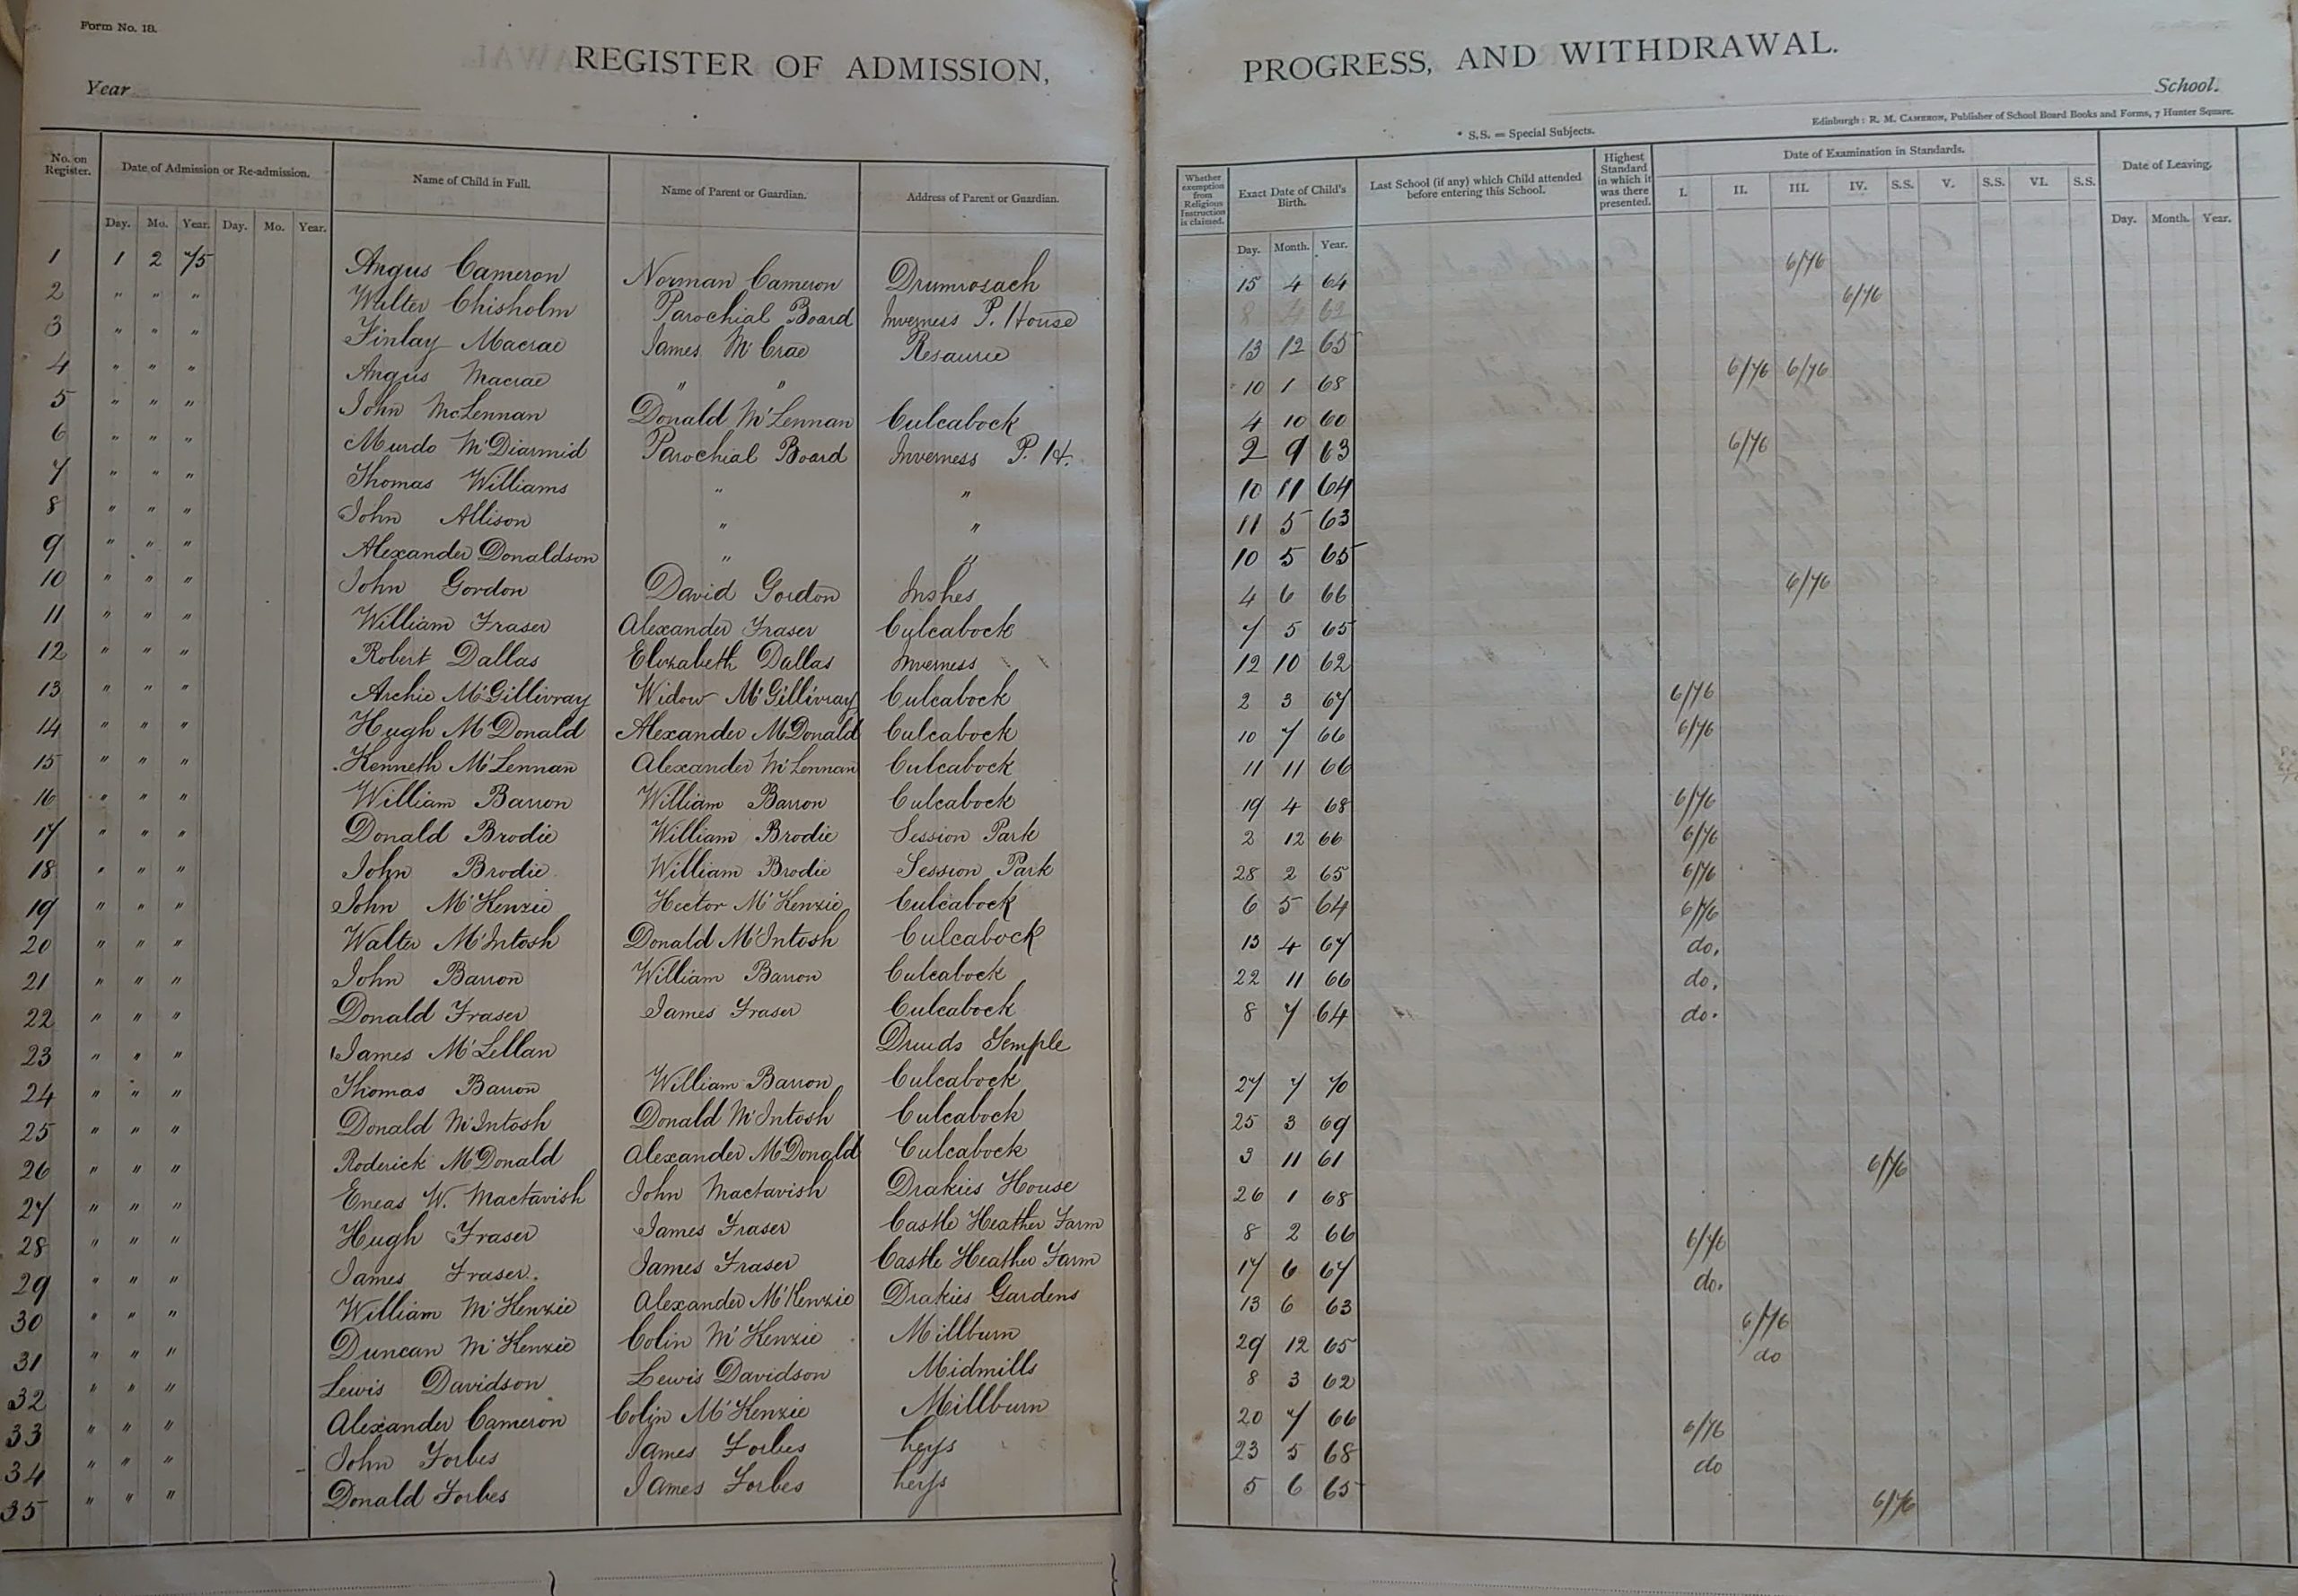 Form No. 18.
REGISTER OF ADMISSION, PROGRESS, AND WITHDRAWAL.
Year School.
* S.S. = Special Subjects. Edinburgh: R. M. CAMERON, Publisher of School Board Books and Forms, 7 Hunter Square.
No. on Register. Date of Admission or Re-admission. Name of Child in Full. Name of Parent or Guardian. Address of Parent or Guardian. Whether exemption from Religious Instruction is claimed. Exact Date of Child's Birth. Last School (if any) which Child attended before entering this School. Highest Standard in which it was there presented. Date of Examination in Standards. Date of Leaving.
I. II. III. IV. S.S. V. S.S. VI. S.S.
Day. Mo. Year. Day. Mo. Year. Day. Month. Year. Day. Month. Year.
1 1 2 75 Angus Cameron Norman Cameron Drumrosach 15 4 64 6/76
2 " " " Walter Chisholm Parochial Board Inverness P. House 8 4 62 6/76
3 " " " Finlay Macrae James McCrae Resaurie 13 12 65
4 " " " Angus Macrae " " 10 1 68 6/76 6/76
5 " " " John McLennan Donald McLennan Culcabock 4 10 60
6 " " " Murdo McDiarmid Parochial Board Inverness P. H. 2 9 63 6/76
7 " " " Thomas Williams " " 10 11 64
8 " " " John Allison " " 11 5 63
9 " " " Alexander Donaldson " " 10 5 65
10 " " " John Gordon David Gordon Inshes 4 6 66 6/76
11 " " " William Fraser Alexander Fraser Culcabock 7 5 65
12 " " " Robert Dallas Elizabeth Dallas Inverness 12 10 62
13 " " " Archie McGillivray Widow McGillivray Culcabock 2 3 67 6/76
14 " " " Hugh McDonald Alexander McDonald Culcabock 10 7 66 6/76
15 " " " Kenneth McLennan Alexander McLennan Culcabock 11 11 66
16 " " " William Barron William Barron Culcabock 19 4 68 6/76
17 " " " Donald Brodie William Brodie Session Park 2 12 66 6/76
18 " " " John Brodie William Brodie Session Park 28 2 65 6/76
19 " " " John McKenzie Hector McKenzie Culcabock 6 5 64 6/76
20 " " " Walter McIntosh Donald McIntosh Culcabock 13 4 67 do.
21 " " " John Barron William Barron Culcabock 22 11 66 do.
22 " " " Donald Fraser James Fraser Culcabock 8 7 64 do.
23 " " " James McLellan Druids Temple
24 " " " Thomas Barron William Barron Culcabock 27 7 70
25 " " " Donald McIntosh Donald McIntosh Culcabock 25 3 69
26 " " " Roderick McDonald Alexander McDonald Culcabock 3 11 61 6/76
27 " " " Eneas W. Mactavish John Mactavish Drakies House 26 1 68
28 " " " Hugh Fraser James Fraser Castle Heather Farm 8 2 66 6/76
29 " " " James Fraser. James Fraser Castle Heather Farm 17 6 67 do.
30 " " " William McKenzie Alexander McKenzie Drakies Gardens 13 6 63 6/76
31 " " " Duncan McKenzie Colin McKenzie Millburn 29 12 65 do
32 " " " Lewis Davidson Lewis Davidson Midmills 8 3 62
33 " " " Alexander Cameron Colin McKenzie Millburn 20 7 66 6/76
34 " " " John Forbes James Forbes Leys 23 5 68 do
35 " " " Donald Forbes James Forbes Leys 5 6 65 6/76